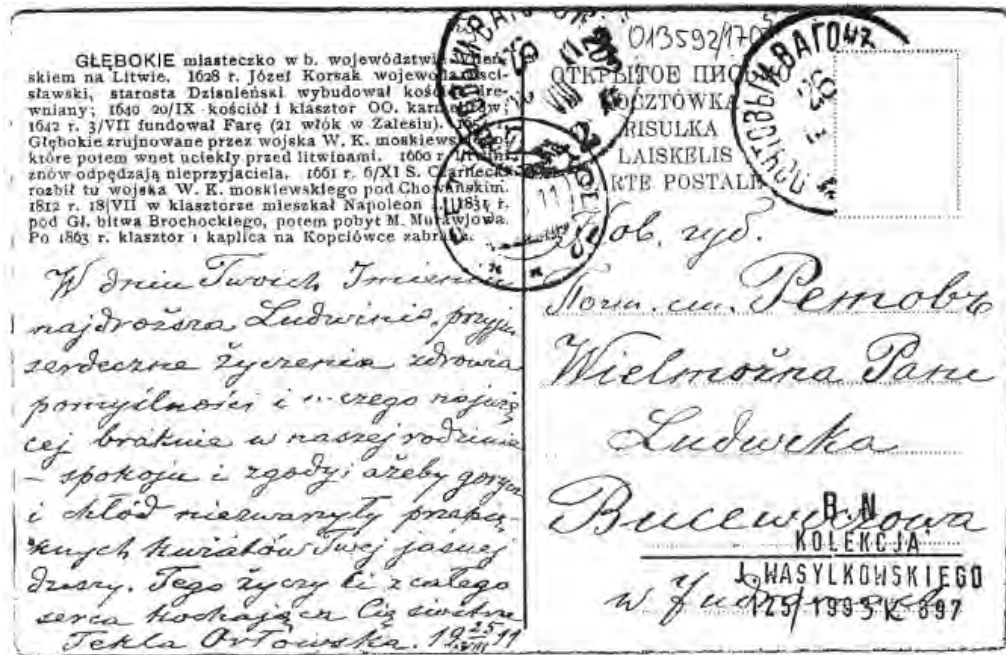 GŁĘBOKIE miasteczko w b. województwie wileń-
skiem na Litwie. 1628 r. Józef Korsak wojewoda mści-
sławski, starosta Dzisnieński wybudował kościół dre-
wniany; 1640 20/IX kościół i klasztor OO. karmelitów;
1642 r. 3/VII fundował Farę (21 włók w Zalesiu).
Głębokie zrujnowane przez wojska W. K. moskiewskiego
które potem wnet uciekły przed litwinami. 1660 r. Litwini
znów odpędzają nieprzyjaciela. 1661 r. 6/XI S. Czarnecki
rozbił tu wojska W. K. moskiewskiego pod Chowańskim.
1812 r. 18/VII w klasztorze mieszkał Napoleon I. 1831 r.
pod Gł. bitwa Brochockiego, potem pobyt M. Murawjowa.
Po 1863 r. klasztor i kaplica na Kopciówce zabrane.
W dniu Twoich Imienin
najdroższa Ludwinio, przyjm
serdeczne życzenia zdrowia
pomyślności i czego najwię
cej braknie w naszej rodzinie
– spokoju i zgody; ażeby gorycz
i chłód niezwarzyły przepię-
knych kwiatów Twej jasnej
duszy. Tego życzy Ci z całego
serca kochająca Cię siostra
Tekla Orłowska. 19 25/VIII 11
013592/170
ОТКРЫТОЕ ПИСЬМО
POCZTÓWKA
RISULKA
LAISKELIS
CARTE POSTALE
ПОЧТОВЫЙ ВАГОНЪ
Ков. губ.
Wielmożna Pani
Ludwika
Bucewiczowa
w
B.N
KOLEKCJA
J. WASYLKOWSKIEGO
125/1995 K 897